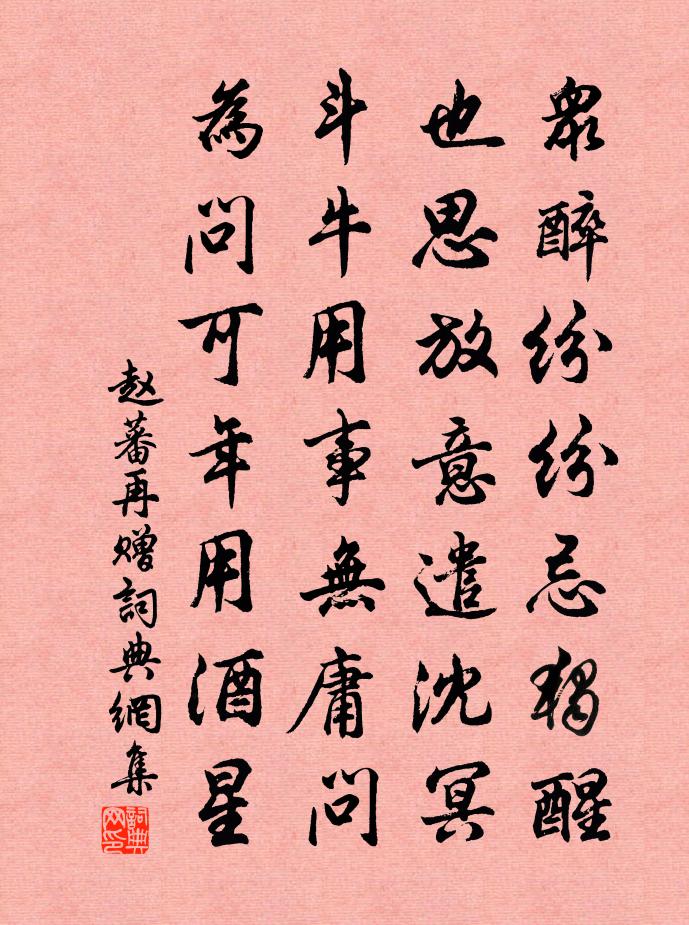 眾醉紛紛忌獨醒
也思放意遣沈冥
斗牛用事無庸問
為問可年用酒星
赵蕃再赠詞典網集
詞典网印